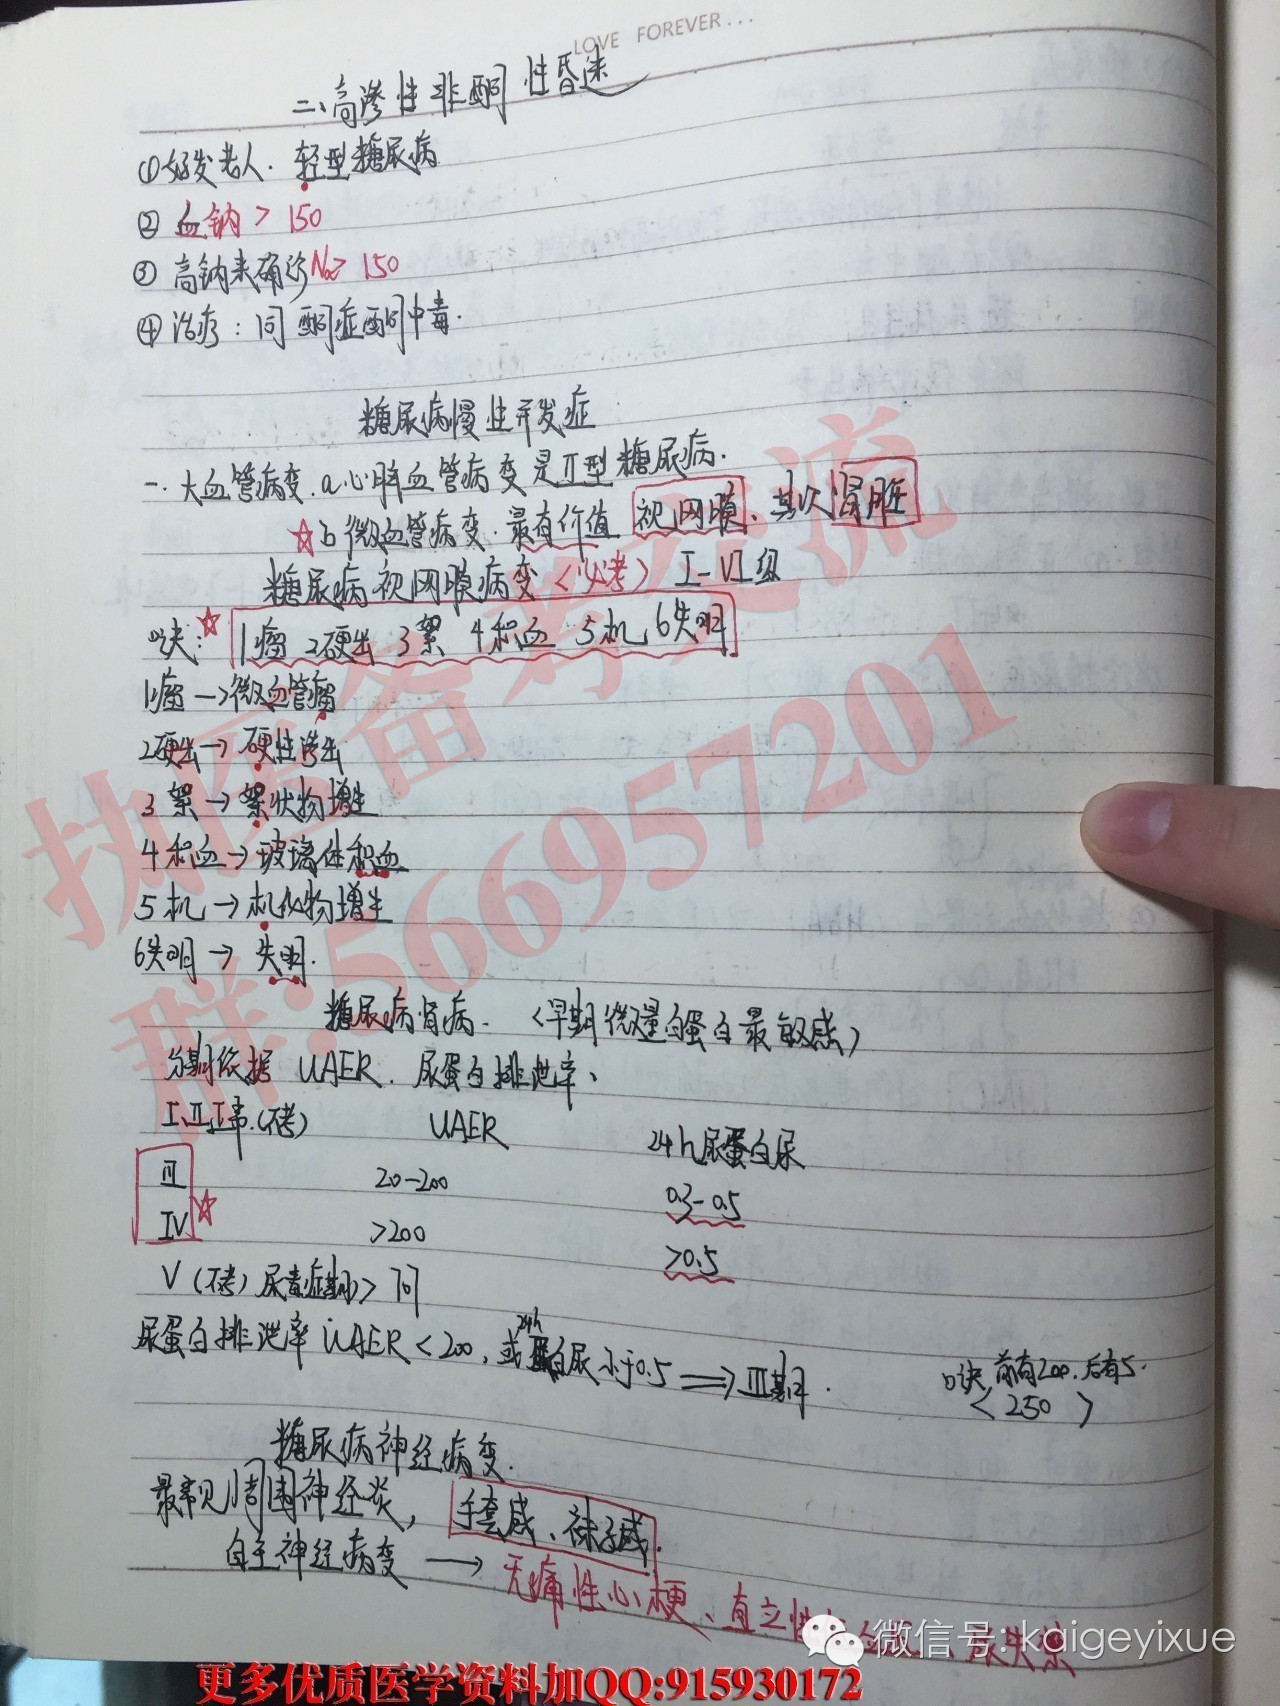 LOVE FOREVER...
二、高渗性非酮性昏迷
①好发老人.轻型糖尿病
② 血钠 > 150
③ 高钠来确诊Na≥ 150
④治疗:同酮症酮中毒.
糖尿病慢性并发症
一.大血管病变.a心脏血管病变是Ⅱ型糖尿病.
☆b微血管病变.最有价值 视网膜、其次肾脏
糖尿病视网膜病变<必考> Ⅰ-Ⅵ级
口诀:☆ 1瘤 2硬出 3絮 4积血 5机 6失明
1瘤→微血管瘤
2硬出→硬性渗出
3絮→絮状物增生
4积血→玻璃体积血
5机→机化物增生
6失明→失明.
糖尿病肾病. <早期微量白蛋白最敏感>
分期依据 UAER. 尿蛋白排泄率、
Ⅰ、Ⅱ正常.(不考) UAER 24h尿蛋白尿
Ⅲ 20-200 0.3-0.5
Ⅳ ☆ >200 >0.5
Ⅴ(不考)尿毒症期>同
尿蛋白排泄率UAER<200,或24h蛋白尿小于0.5 ⟹Ⅲ期. 口诀,前有200.后有5.
<250>
糖尿病神经病变.
最常见周围神经炎, 手套感、袜子感.
自主神经病变 → 无痛性心梗、直立性 尿失禁
执医备考交流
群:566957201
微信号: kaigeyixue
更多优质医学资料加QQ:915930172